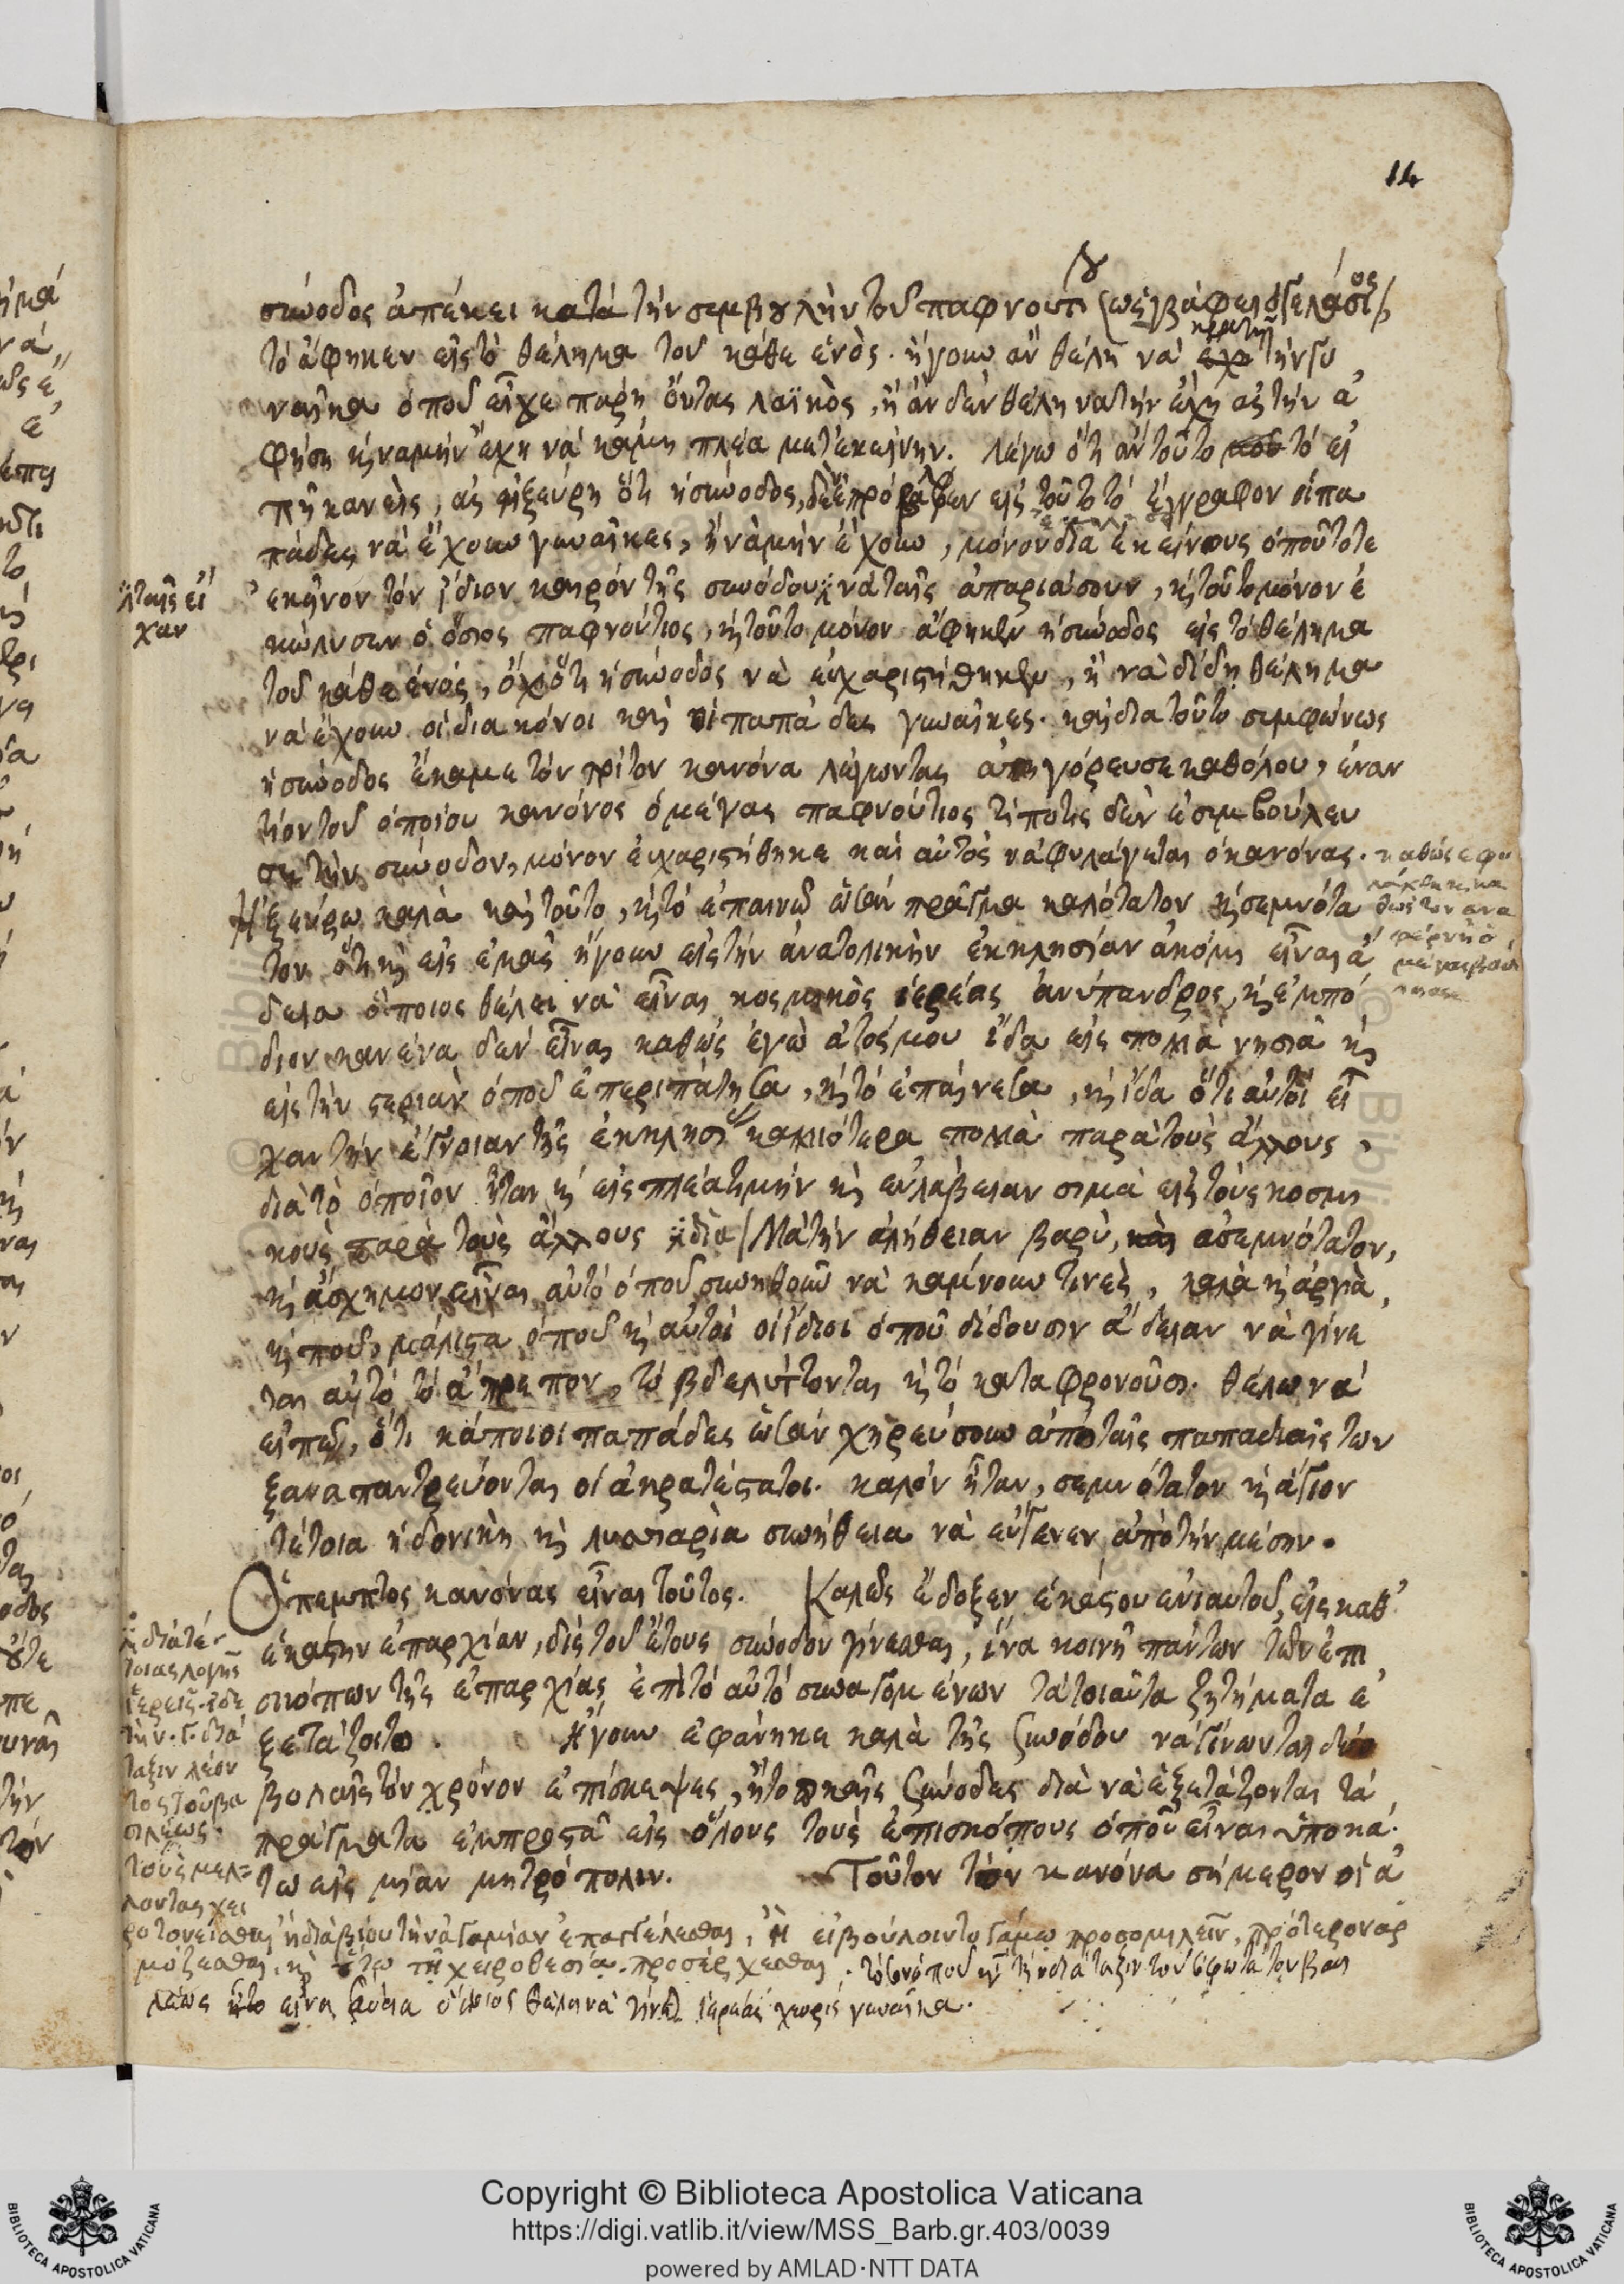 14
σύνοδος ἀπέκει κατά τὴν συμβουλὴν τοῦ παφνουτίου
τὸ ἄφηκεν εἰς τὸ θέλημα τοῦ κάθε ἑνὸς. ἤγουν ἄν θέλῃ νὰ κρατῇ τὴν γυ
ναῖκα ὁποῦ εἶχε πάρῃ ὄντας λαϊκὸς, ἢ ἂν δὲν θέλῃ νὰ τὴν ἔχῃ ἂς τὴν ἀ
φήσῃ κὶ νὰ μὴν ἔχῃ νὰ κάμῃ πλέα μετ' ἐκείνην. λέγω ὅτι ἂν τοῦτο τὸ εἰ
πῇ κανεὶς, ἂς ἠξεύρῃ ὅτι ἡ σύνοδος, δὲν εἰς τοῦτο τὸ ἔγγραφον οἱ πα
πάδες νὰ ἔχουν γυναῖκες, ἢ νὰ μὴν ἔχουν, μόνον διὰ ἐκείνους ὁποῦ τότε
ἐκεῖνον τὸν ἴδιον καιρόν τῆς συνόδου νὰ ταῖς ἀπαριάσουν, κὶ τοῦτο μόνον ἐ
ὁταῖς εἶ
χαν
κώλυσεν ὁ ὅσιος παφνούτιος, κὶ τοῦτο μόνον ἄφηκεν ἡ σύνοδος εἰς τὸ θέλημα
τοῦ κάθε ἑνός, ὄχι ὅτι ἡ σύνοδος νὰ εὐχαριστήθηκεν, ἢ νὰ δίδῃ θέλημα
νὰ ἔχουν οἱ διακόνοι καὶ οἱ παπάδες γυναῖκες. καὶ διὰ τοῦτο συμφώνως
ἡ σύνοδος ἔκαμε τὸν τρίτον κανόνα λέγωντας ἀπηγόρευσε καθόλου, ἐναν
τίον τοῦ ὁποίου κανόνος ὁ μέγας παφνούτιος τίποτις δὲν ἐσυμβούλευ
σε τὴν σύνοδον, μόνον εὐχαριστήθηκε καὶ αὐτὸς νὰ φυλάγεται ὁ κανόνας. καθὼς ἐφυ
λάχθηκε, κα
θὼς τὸν ἀνα
φέρνῃ ὁ
μέγας βασί
λειος
Ἠξεύρω καλὰ καὶ τοῦτο, κὶ τὸ ἐπαινῶ ὡσάν πρᾶγμα καλότατον κὶ σεμνότα
τον, ὅτι κὶ εἰς ἐμᾶς ἤγουν εἰς τὴν ἀνατολικὴν ἐκκλησίαν ἀκόμη εἶναι ἄ
δεια ὅποιος θέλει νὰ εἶναι κοσμικὸς ἱερέας ἀνύπανδρος, κὶ ἐμπό
διον κανένα δέν εἶναι καθὼς ἐγὼ ἀτός μου ἴδα εἰς πολλὰ νησιὰ κὶ
εἰς τὴν στεριὰν ὁποῦ ἐπεριπάτησα, κὶ τὸ ἐπαίνεσα, κὶ ἴδα ὅτι αὐτοὶ εἶ
χαν τὴν ἔγνοιαν τῆς ἐκκλησίας καλλιότερα πολλὰ παρὰ τοὺς ἄλλους,
διὰ τὸ ὁποῖον ἦταν κὶ εἰς πλέα τιμὴν κὶ εὐλάβειαν σιμὰ εἰς τοὺς κοσμι
κοὺς παρὰ τοὺς ἄλλους Μὰ τὴν ἀλήθειαν βαρὺ, ἀσεμνότατον,
κὶ ἄσχημον εἶναι αὐτὸ ὁποῦ συνηθοῦν νὰ καμίνουν τινὲς, καλὰ κὶ ἀργὰ
κὶ ποῦ, μάλιστα ὁποῦ κὶ αὐτοὶ οἱ ἴδιοι ὁποῦ δίδουσιν ἄδειαν νὰ γίνε
ται αὐτὸ τὸ ἄπρεπον, τὸ βδελύττονται κὶ τὸ καταφρονοῦσι. θέλω νὰ
εἰπῶ, ὅτι κάποιοι παπάδες ὡσὰν χηρεύσουν ἀπὸ ταῖς παπαδιαῖς των
ξαναπαντρεύονται οἱ ἀκρατέστατοι. καλὸν ἦταν, σεμνότατον κὶ ἅγιον
τέτοια ἡδονικὴ κὶ λυσσιαρία συνήθεια νὰ εὔγενεν ἀπὸ τὴν μέσην.
Ὁ πέμπτος κανόνας εἶναι τοῦτος. Καλῶς ἔδοξεν ἑκάστου ἐνιαυτοῦ, εἰς καθ'
ἑκάστην ἐπαρχίαν, δὶς τοῦ ἔτους σύνοδον γίνεσθαι, ἵνα κοινῇ πάντων τῶν ἐπι
σκόπων τῆς ἐπαρχίας ἐπὶ τὸ αὐτὸ συναγομένων τὰ τοιαῦτα ζητήματα ἐ
ξετάζοιτο. Ἤγουν ἐφάνηκε καλὰ τῆς συνόδου νὰ γίνωνται δύο
βολαῖς τὸν χρόνον ἐπίσκεψες, ἢ τοπικαῖς σύνοδες διὰ νὰ ἐξετάζονται τὰ
πράγματα ἐμπροστὰ εἰς ὅλους τοὺς ἐπισκόπους ὁποῦ εἶναι ὑποκά
τω εἰς μίαν μητρόπολιν. Τοῦτον τὸν κανόνα σήμερον οἱ ἀ
διὰ τέ
τοιας λογῆς
ἱερεῖς. ἰδὲ
τὴν .γ. διά
ταξιν λέον
τος τοῦ βα
σιλέως.
τοὺς μέλ=
λοντας χει
ροτονεῖσθαι ἢ διὰ βίου τὴν ἀγαμίαν ἐπαγγέλεσθαι, ἢ εἰ βούλοιντο γάμῳ προσομιλεῖν, πρότερον ἁρ
μόζεσθαι, κὶ οὕτω τῇ χειροθεσίᾳ προσέρχεσθαι.
λέως εἶναι ὅποιος θέλει νὰ γίνῃ ἱερεὺς χωρὶς γυναῖκα.
Copyright © Biblioteca Apostolica Vaticana
https://digi.vatlib.it/view/MSS_Barb.gr.403/0039
powered by AMLAD·NTT DATA
BIBLIOTECA APOSTOLICA VATICANA
BIBLIOTECA APOSTOLICA VATICANA